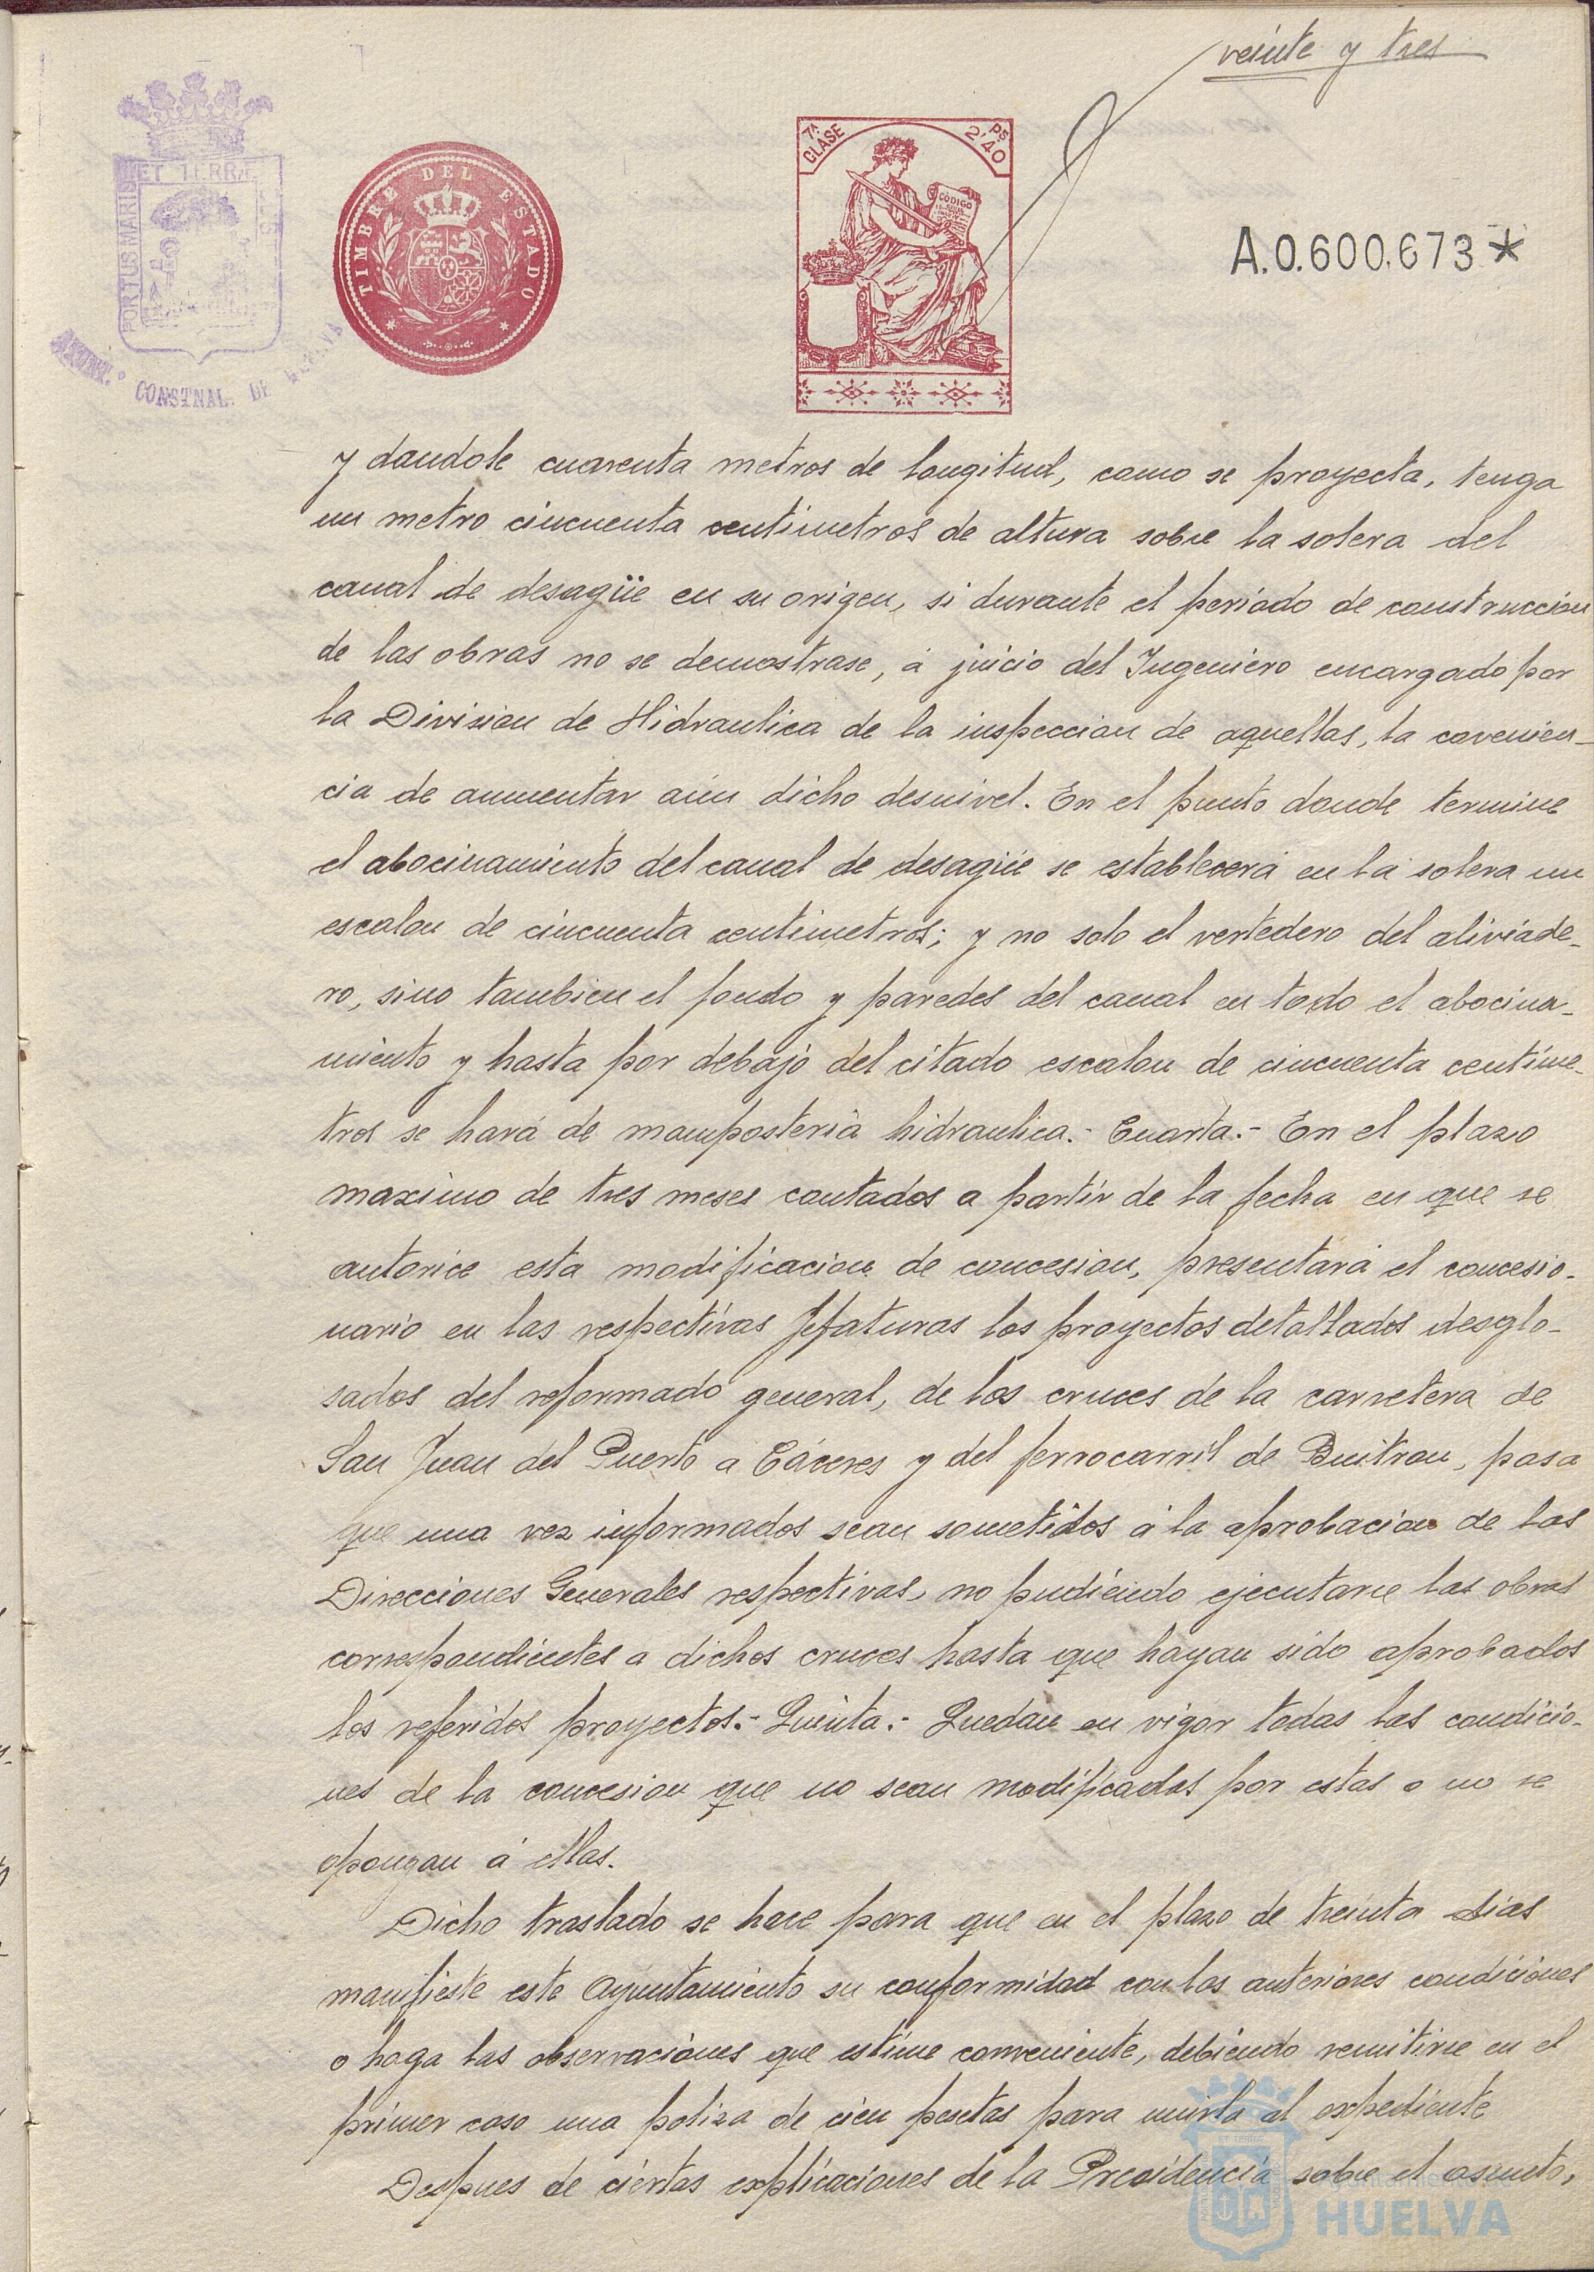 veinte y tres
PORTUS MARIS ET TERRÆ
CONSTNAL. DE HUELVA
TIMBRE DEL ESTADO
7ª CLASE
Ps 2'40
CÓDIGO
A.0.600.673*
y dandole cuarenta metros de longitud, como se proyecta, tenga
un metro cincuenta centimetros de altura sobre la solera del
canal de desagüe en su origen, si durante el periodo de construccion
de las obras no se demostrase, á juicio del Ingeniero encargado por
la Division de Hidraulica de la inspeccion de aquellas, la covenien-
cia de aumentar aún dicho desnivel. En el punto donde termine
el abocinamiento del canal de desagüe se establecerá en la solera un
escalon de cincuenta centimetros; y no solo el vertedero del aliviade-
ro, sino tambien el fondo y paredes del canal en todo el abocina-
miento y hasta por debajo del citado escalon de cincuenta centime-
tros se hará de mamposteria hidraulica.- Cuarta.- En el plazo
maximo de tres meses contados a partir de la fecha en que se
autorice esta modificacion de concesion, presentará el concesio-
nario en las respectivas Jefaturas los proyectos detallados desglo-
sados del reformado general, de los cruces de la carretera de
San Juan del Puerto a Cáceres y del ferrocarril de Buitron, pasa
que una vez informados sean sometidos á la aprobacion de las
Direcciones Generales respectivas, no pudiendo ejecutarse las obras
correspondientes a dichos cruces hasta que hayan sido aprobados
los referidos proyectos.- Quinta.- Quedan en vigor todas las condicio-
nes de la concesion que no sean modificadas por estas o no se
opongan á ellas.
Dicho traslado se hace para que en el plazo de treinta dias
manifieste este Ayuntamiento su conformidad con las anteriores condiciones
o haga las observaciones que estime conveniente, debiendo remitirse en el
primer caso una poliza de cien pesetas para unirla al expediente
Despues de ciertas explicaciones de la Presidencia sobre el asunto,
Ayuntamiento de
HUELVA